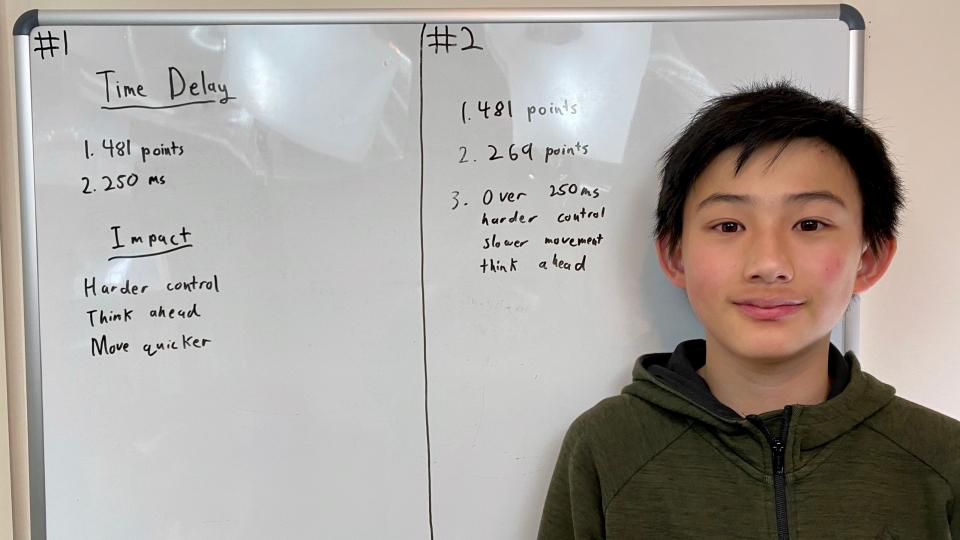 #1
Time Delay
1. 481 points
2. 250 ms
Impact
Harder control
Think ahead
Move quicker
#2
1. 481 points
2. 269 points
3. Over 250ms
harder control
slower movement
think ahead